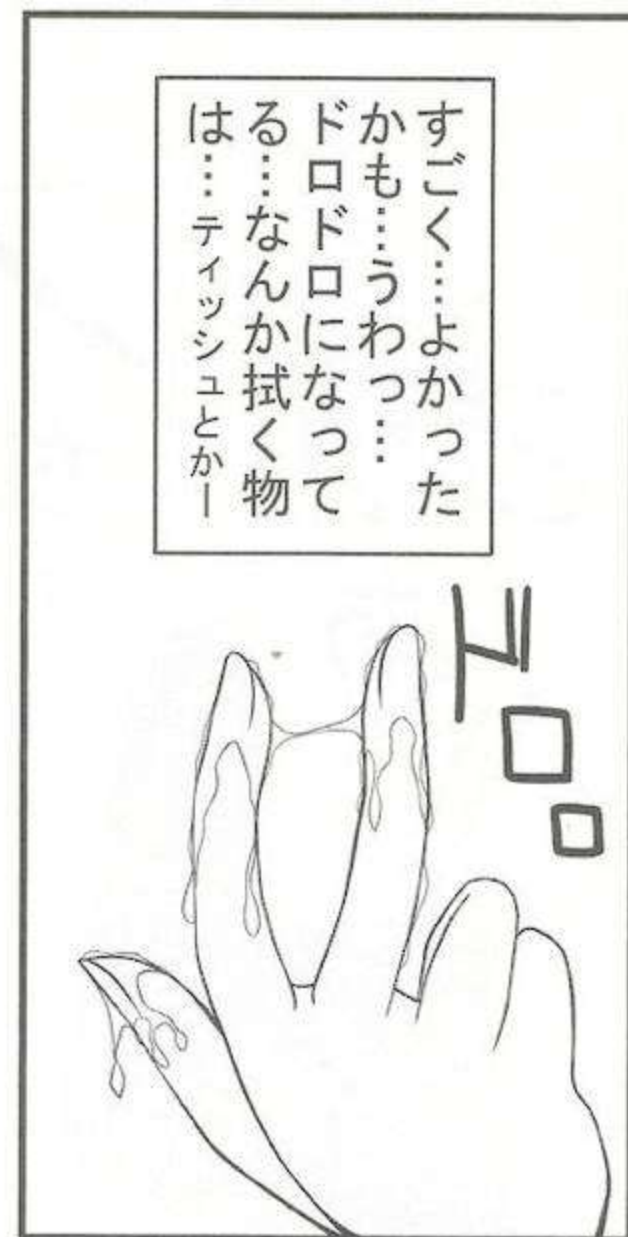 すごく…よかった
かも…うわっ…
ドロドロになって
る…なんか拭く物
は…ティッシュとかー